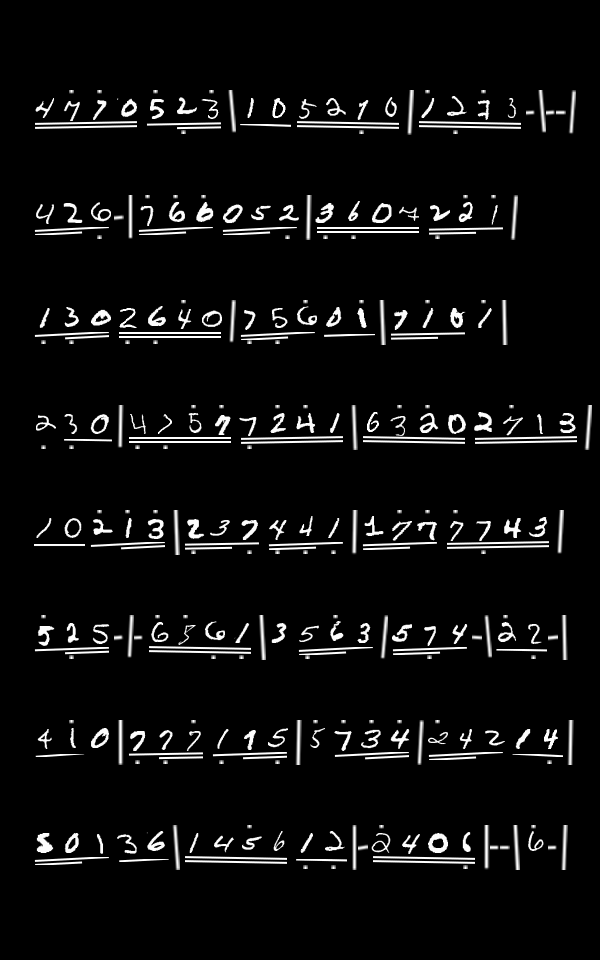 4 7 7 0 5 2 3 | 1 0 5 2 7 0 | 1 2 7 3 - | - - |
4 2 6 - | 7 6 6 0 5 2 | 3 6 0 7 2 2 1 |
1 3 0 2 6 4 0 | 7 5 6 0 1 | 7 1 0 1 |
2 3 0 | 4 7 5 7 7 2 4 1 | 6 3 2 0 2 7 1 3 |
1 0 2 1 3 | 2 3 7 4 4 1 | 1 7 7 7 7 4 3 |
5 2 5 - | - 6 5 6 1 | 3 5 6 3 | 5 7 4 - | 2 2 - |
4 1 0 | 7 7 7 1 1 5 | 5 7 3 4 | 2 4 2 1 4 |
5 0 1 3 6 | 1 4 5 6 1 2 | - 2 4 0 6 | - - | 6 - |